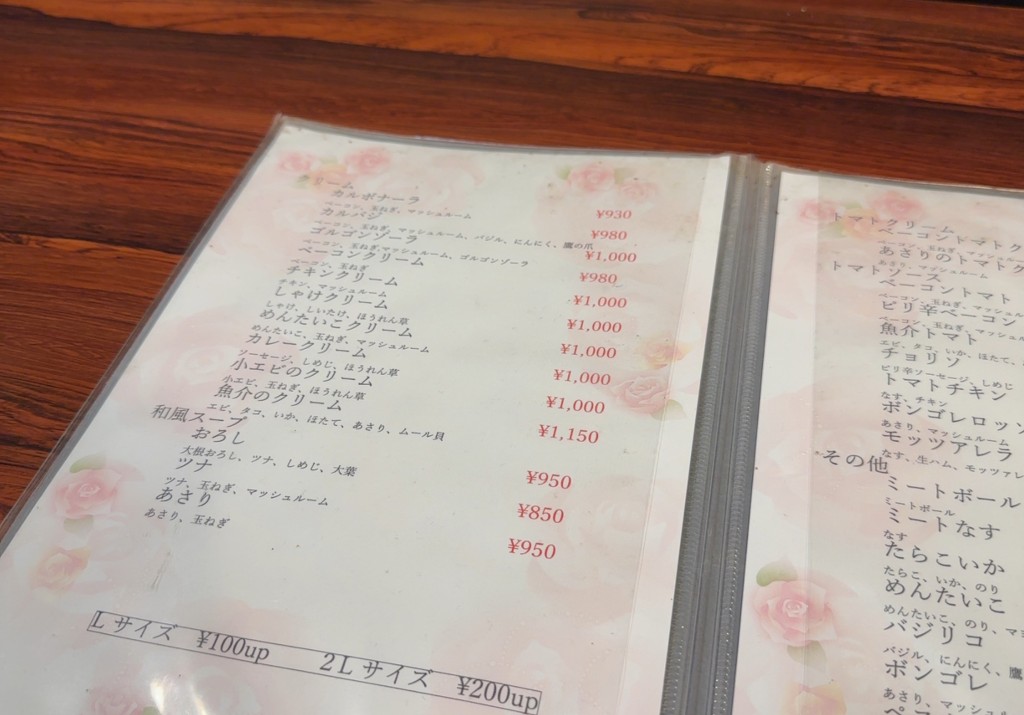 クリーム
カルボナーラ ¥930
ベーコン、玉ねぎ、マッシュルーム
カルバジ ¥980
ベーコン、玉ねぎ、マッシュルーム、バジル、にんにく、鷹の爪
ゴルゴンゾーラ ¥1,000
ベーコン、玉ねぎ、マッシュルーム、ゴルゴンゾーラ
ベーコンクリーム ¥980
ベーコン、玉ねぎ
チキンクリーム ¥1,000
チキン、マッシュルーム
しゃけクリーム ¥1,000
しゃけ、しいたけ、ほうれん草
めんたいこクリーム ¥1,000
めんたいこ、玉ねぎ、マッシュルーム
カレークリーム ¥1,000
ソーセージ、しめじ、ほうれん草
小エビのクリーム ¥1,000
小エビ、玉ねぎ、ほうれん草
魚介のクリーム ¥1,150
エビ、タコ、いか、ほたて、あさり、ムール貝
和風スープ
おろし ¥950
大根おろし、ツナ、しめじ、大葉
ツナ ¥850
ツナ、玉ねぎ、マッシュルーム
あさり ¥950
あさり、玉ねぎ
Lサイズ ¥100up 2Lサイズ ¥200up
トマトクリーム
ベーコントマトク
ベーコン、玉ねぎ、マッシュルーム
あさりのトマトク
あさり、マッシュルーム
トマトソース
ベーコントマト
ベーコン、玉ねぎ、マッシュ
ピリ辛ベーコン
ベーコン、玉ねぎ、マッシュ
魚介トマト
エビ、タコ、いか、ほたて、
チョリソ
ピリ辛ソーセージ、しめじ
トマトチキン
なす、チキン
ボンゴレロッソ
あさり、マッシュルーム
モッツアレラ
なす、生ハム、モッツァレ
その他
ミートボール
ミートボール
ミートなす
なす
たらこいか
たらこ、いか、のり
めんたいこ
めんたいこ、のり、マ
バジリコ
バジル、にんにく、鷹
ボンゴレ
あさり、マッシュ